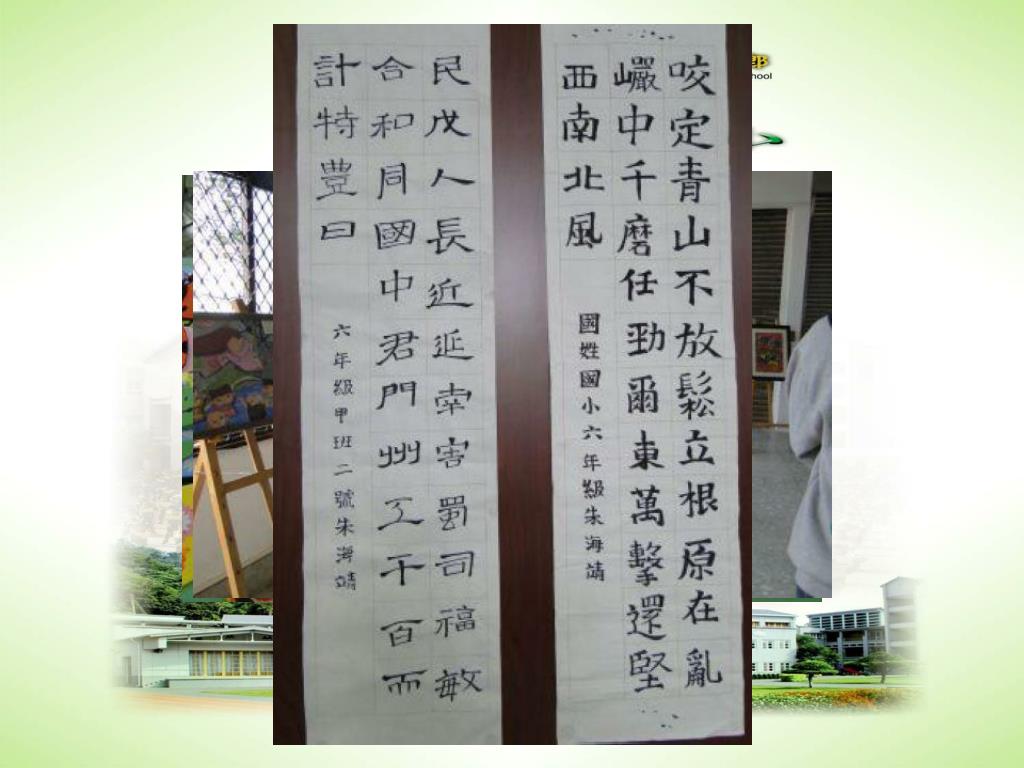 咬定青山不放鬆立根原在亂
巖中千磨任勁爾東萬擊還堅
西南北風
國姓國小六年級朱海靖
民戊人長近延幸害蜀司福敏
合和同國中君門州工千百而
計特豊曰
六年級甲班二號朱海靖